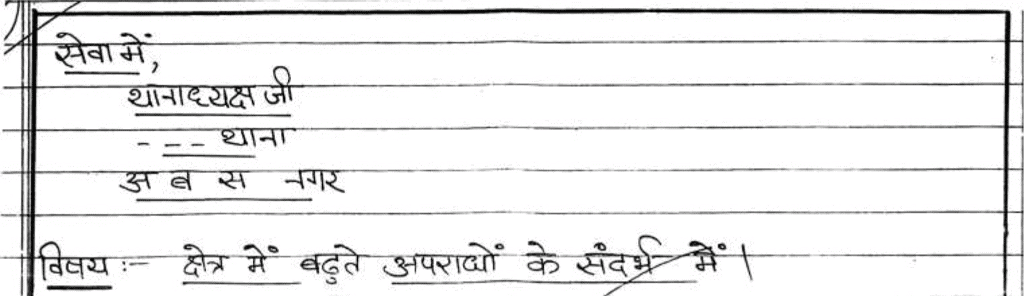 सेवा में,
थानाध्यक्ष जी
- - - थाना
अ ब स नगर
विषय :- क्षेत्र में बढ़ते अपराधों के संदर्भ में।